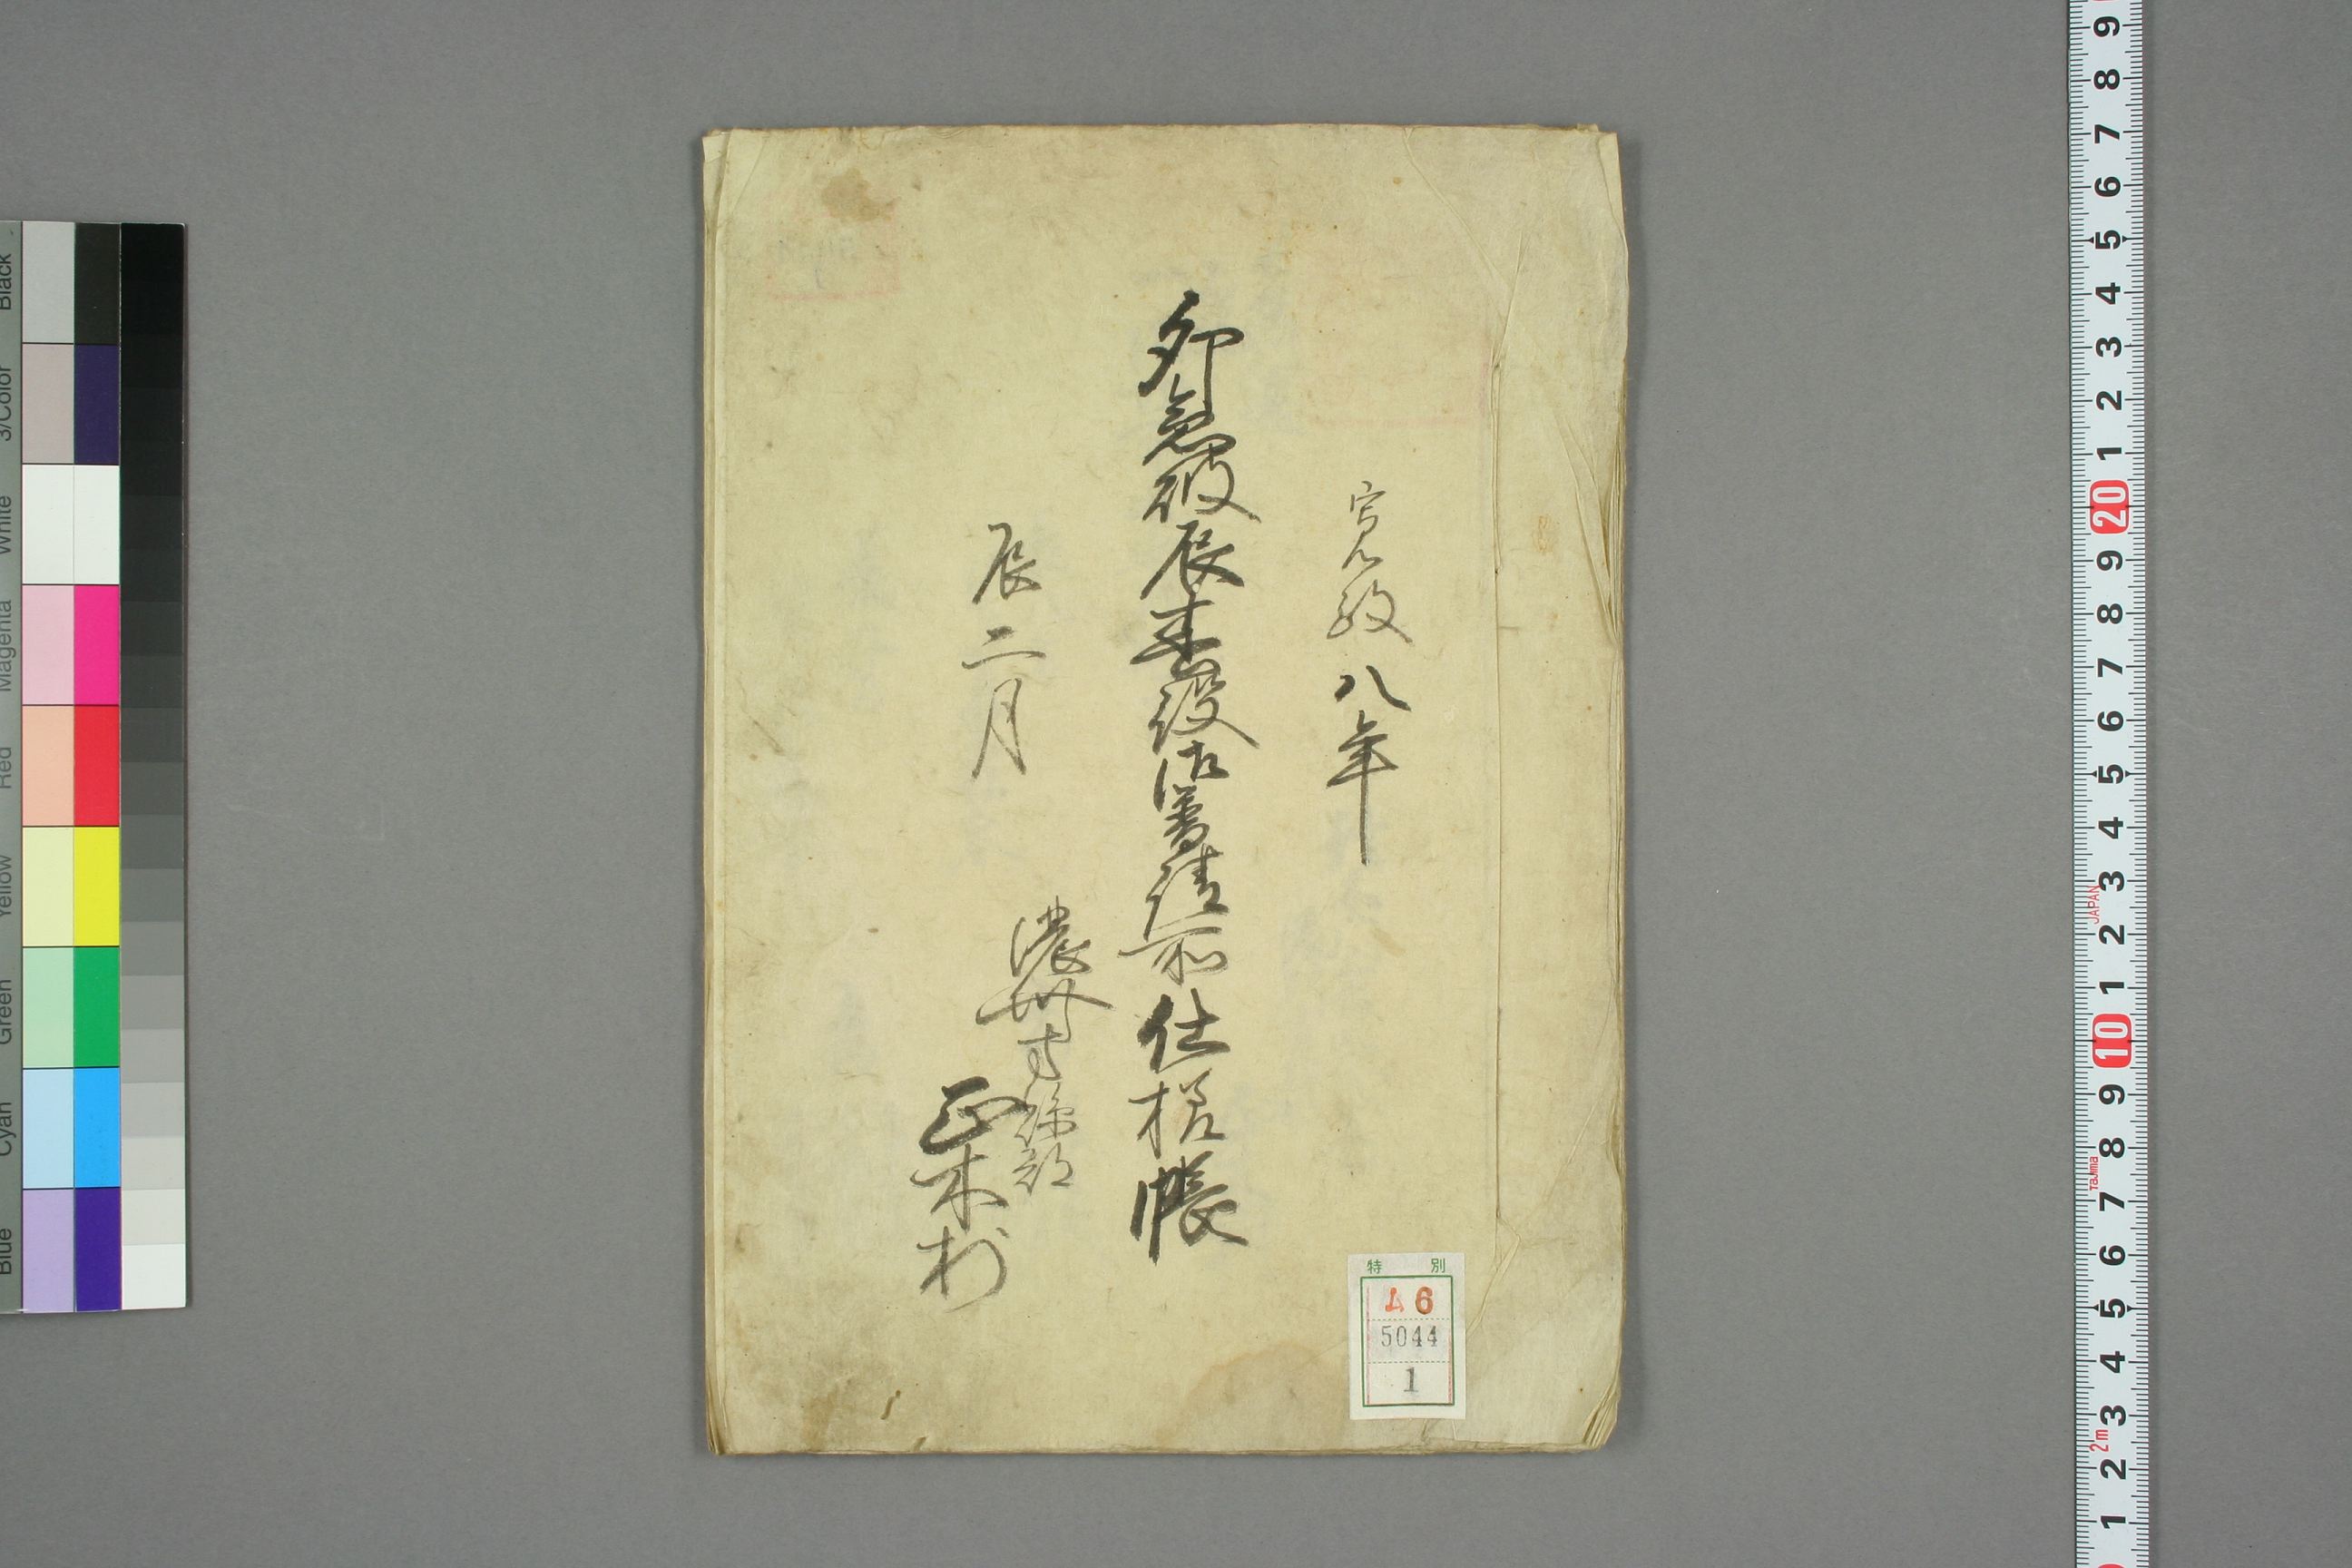 寛政八年
卯急破辰春役御普請所仕様帳
辰二月
濃州本巣郡
正木村
特別
ム6
5044
1
Black
3/Color
White
Magenta
Red
Yellow
Green
Cyan
Blue
9
8
7
6
5
4
3
2
1
20
9
8
7
6
5
4
3
2
1
10
9
8
7
6
5
4
3
2
1
JAPAN
Tajima
2m